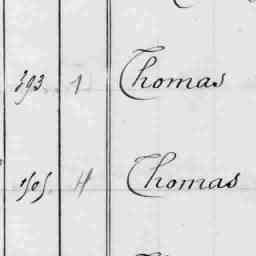 393. 1 Thomas
1505. H Thomas